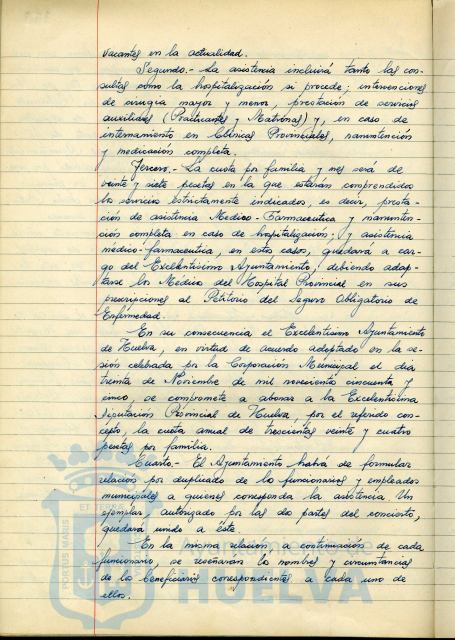 vacantes en la actualidad.
Segundo.- La asistencia incluirá tanto las con-
sultas como la hospitalización si procede; intervenciones
de cirugía mayor y menor, prestación de servicios
auxiliares (Practicantes y Matronas) y, en caso de
internamiento en Clínicas Provinciales, manutención
y medicación completa.
Tercero.- La cuota por familia y mes será de
veinte y siete pesetas en la que estarán comprendidos
los servicios estrictamente indicados, es decir, presta-
ción de asistencia Medico-Farmaceutica y manuten-
ción completa en caso de hospitalización; y asistencia
médico-farmaceutica, en estos casos, quedará a car-
go del Excelentísimo Ayuntamiento; debiendo adap-
tarse los Médicos del Hospital Provincial en sus
prescripciones al Petitorio del Seguro Obligatorio de
Enfermedad.
En su consecuencia el Excelentísimo Ayuntamiento
de Huelva, en virtud de acuerdo adoptado en la se-
sión celebrada por la Corporación Municipal el día
treinta de Noviembre de mil novecientos cincuenta y
cinco, se compromete a abonar a la Excelentísima
Diputación Provincial de Huelva, por el referido con-
cepto, la cuota anual de trescientas veinte y cuatro
pesetas por familia.
Cuarto.- El Ayuntamiento habrá de formular
relación por duplicado de los funcionarios y empleados
municipales a quienes corresponda la asistencia. Un
ejemplar autorizado por las dos partes del concierto,
quedará unido a éste.
En la misma relación a continuación de cada
funcionario, se reseñarán los nombres y circunstancias
de los beneficiarios correspondientes a cada uno de
ellos.
PORTUS MARIS
Ayuntamiento de
HUELVA